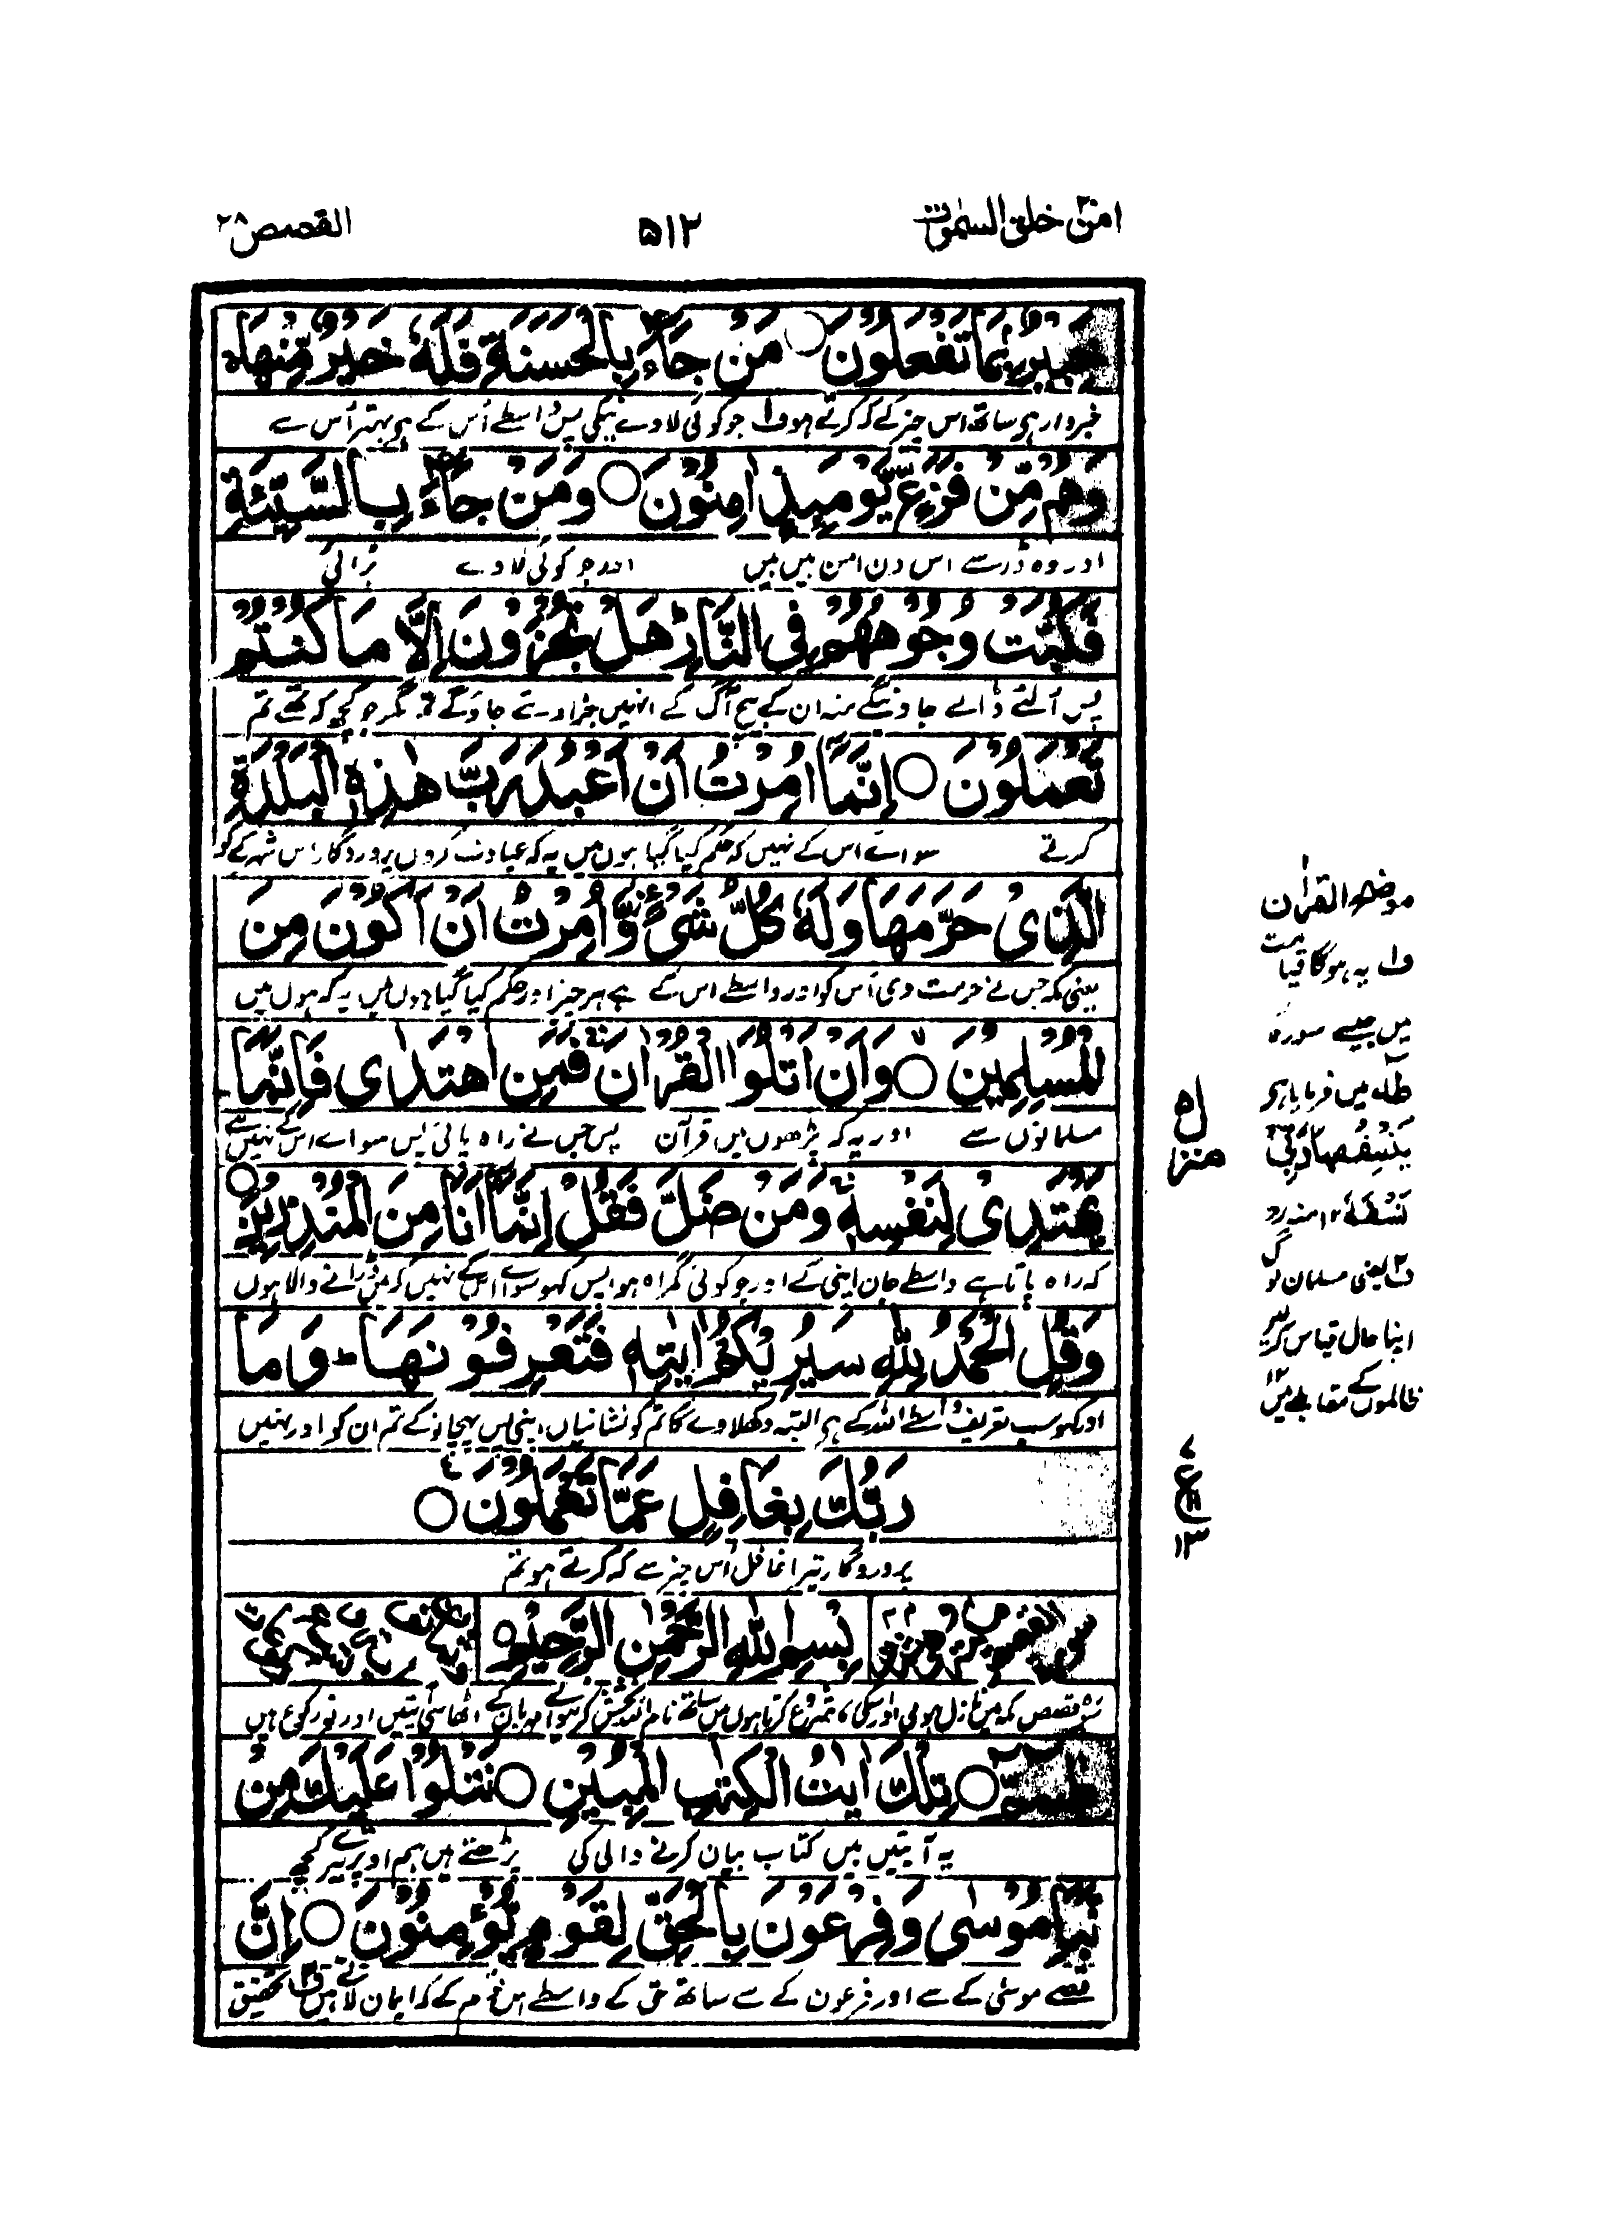 امن خلق السمٰوٰت ۲۰
۵۱۲
القصص ۲۸
خَبِيْرٌۢ بِمَا تَفْعَلُوْنَ ○ مَنْ جَآءَ بِالْحَسَنَةِ فَلَهٗ خَيْرٌ مِّنْهَا ۚ
خبردار ہی ساتھ اس چیز کے کہ کرتے ہو ف۱ جو کوئی لاوے نیکی پس واسطے اُس کے ہی بہتر اُس سے
وَهُمْ مِّنْ فَزَعٍ يَّوْمَئِذٍ اٰمِنُوْنَ ○ وَمَنْ جَآءَ بِالسَّيِّئَةِ
اور وہ ڈر سے اس دن امن میں ہیں اور جو کوئی لاوے بُرائی
فَكُبَّتْ وُجُوْهُهُمْ فِي النَّارِ ؕ هَلْ تُجْزَوْنَ اِلَّا مَا كُنْتُمْ
پس اُلٹے ڈالے جاوینگے منہ ان کے بیچ آگ کے نہیں جزا دیئے جاؤگے تم مگر جو کچھ کہ تھے تم
تَعْمَلُوْنَ ○ اِنَّمَآ اُمِرْتُ اَنْ اَعْبُدَ رَبَّ هٰذِهِ الْبَلْدَةِ
کرتے سوائے اس کے نہیں کہ حکم کیا گیا ہوں میں یہ کہ عبادت کروں پروردگار اس شہر کے کو
الَّذِيْ حَرَّمَهَا وَلَهٗ كُلُّ شَيْءٍ وَّاُمِرْتُ اَنْ اَكُوْنَ مِنَ
یعنی مکہ جس نے حرمت دی اُس کو اور واسطے اس کے ہے ہر چیز اور حکم کیا گیا ہوں میں یہ کہ ہوں میں
الْمُسْلِمِيْنَ ○ وَاَنْ اَتْلُوَا الْقُرْاٰنَ ۚ فَمَنِ اهْتَدٰى فَاِنَّمَا
مسلمانوں سے اور یہ کہ پڑھوں میں قرآن پس جس نے راہ پائی پس سوائے اس کے نہیں
يَهْتَدِيْ لِنَفْسِهٖ ۚ وَمَنْ ضَلَّ فَقُلْ اِنَّمَآ اَنَا مِنَ الْمُنْذِرِيْنَ ○
کہ راہ پاتا ہے واسطے جان اپنی کے اور جو کوئی گمراہ ہوا پس کہو سوائے اس کے نہیں کہ میں ڈرانے والا ہوں
وَقُلِ الْحَمْدُ لِلّٰهِ سَيُرِيْكُمْ اٰيٰتِهٖ فَتَعْرِفُوْنَهَا ؕ وَمَا
اور کہو سب تعریف واسطے اللہ کے ہی البتہ دکھلاوے گا تم کو نشانیاں اپنی پس پہچانو گے تم ان کو اور نہیں
رَبُّكَ بِغَافِلٍ عَمَّا تَعْمَلُوْنَ ○
پروردگار تیرا غافل اُس چیز سے کہ کرتے ہو تم
بِسْمِ اللّٰهِ الرَّحْمٰنِ الرَّحِيْمِ ○
طٰسٓمّٓ ○ تِلْكَ اٰيٰتُ الْكِتٰبِ الْمُبِيْنِ ○ نَتْلُوْا عَلَيْكَ مِنْ
یہ آیتیں ہیں کتاب بیان کرنے والی کی پڑھتے ہیں ہم اوپر تیرے کچھ
نَّبَاِ مُوْسٰى وَفِرْعَوْنَ بِالْحَقِّ لِقَوْمٍ يُّؤْمِنُوْنَ ○ اِنَّ
قصے موسیٰ کے سے اور فرعون کے سے ساتھ حق کے واسطے اس قوم کے کہ ایمان لاتے ہیں ف۲ تحقیق
موضح القرآن
ف۱ یہ ہوگا قیامت
میں جیسے سورہ
طٰہٰ میں فرمایا ہی
يَنْسِفُهَا رَبِّيْ
نَسْفًا ۱۲ منہ رح
ف۲ یعنی مسلمان لوگ
اپنا حال قیاس کریں
ظالموں کے مقابلے میں ۱۲
منزل ۵
ع